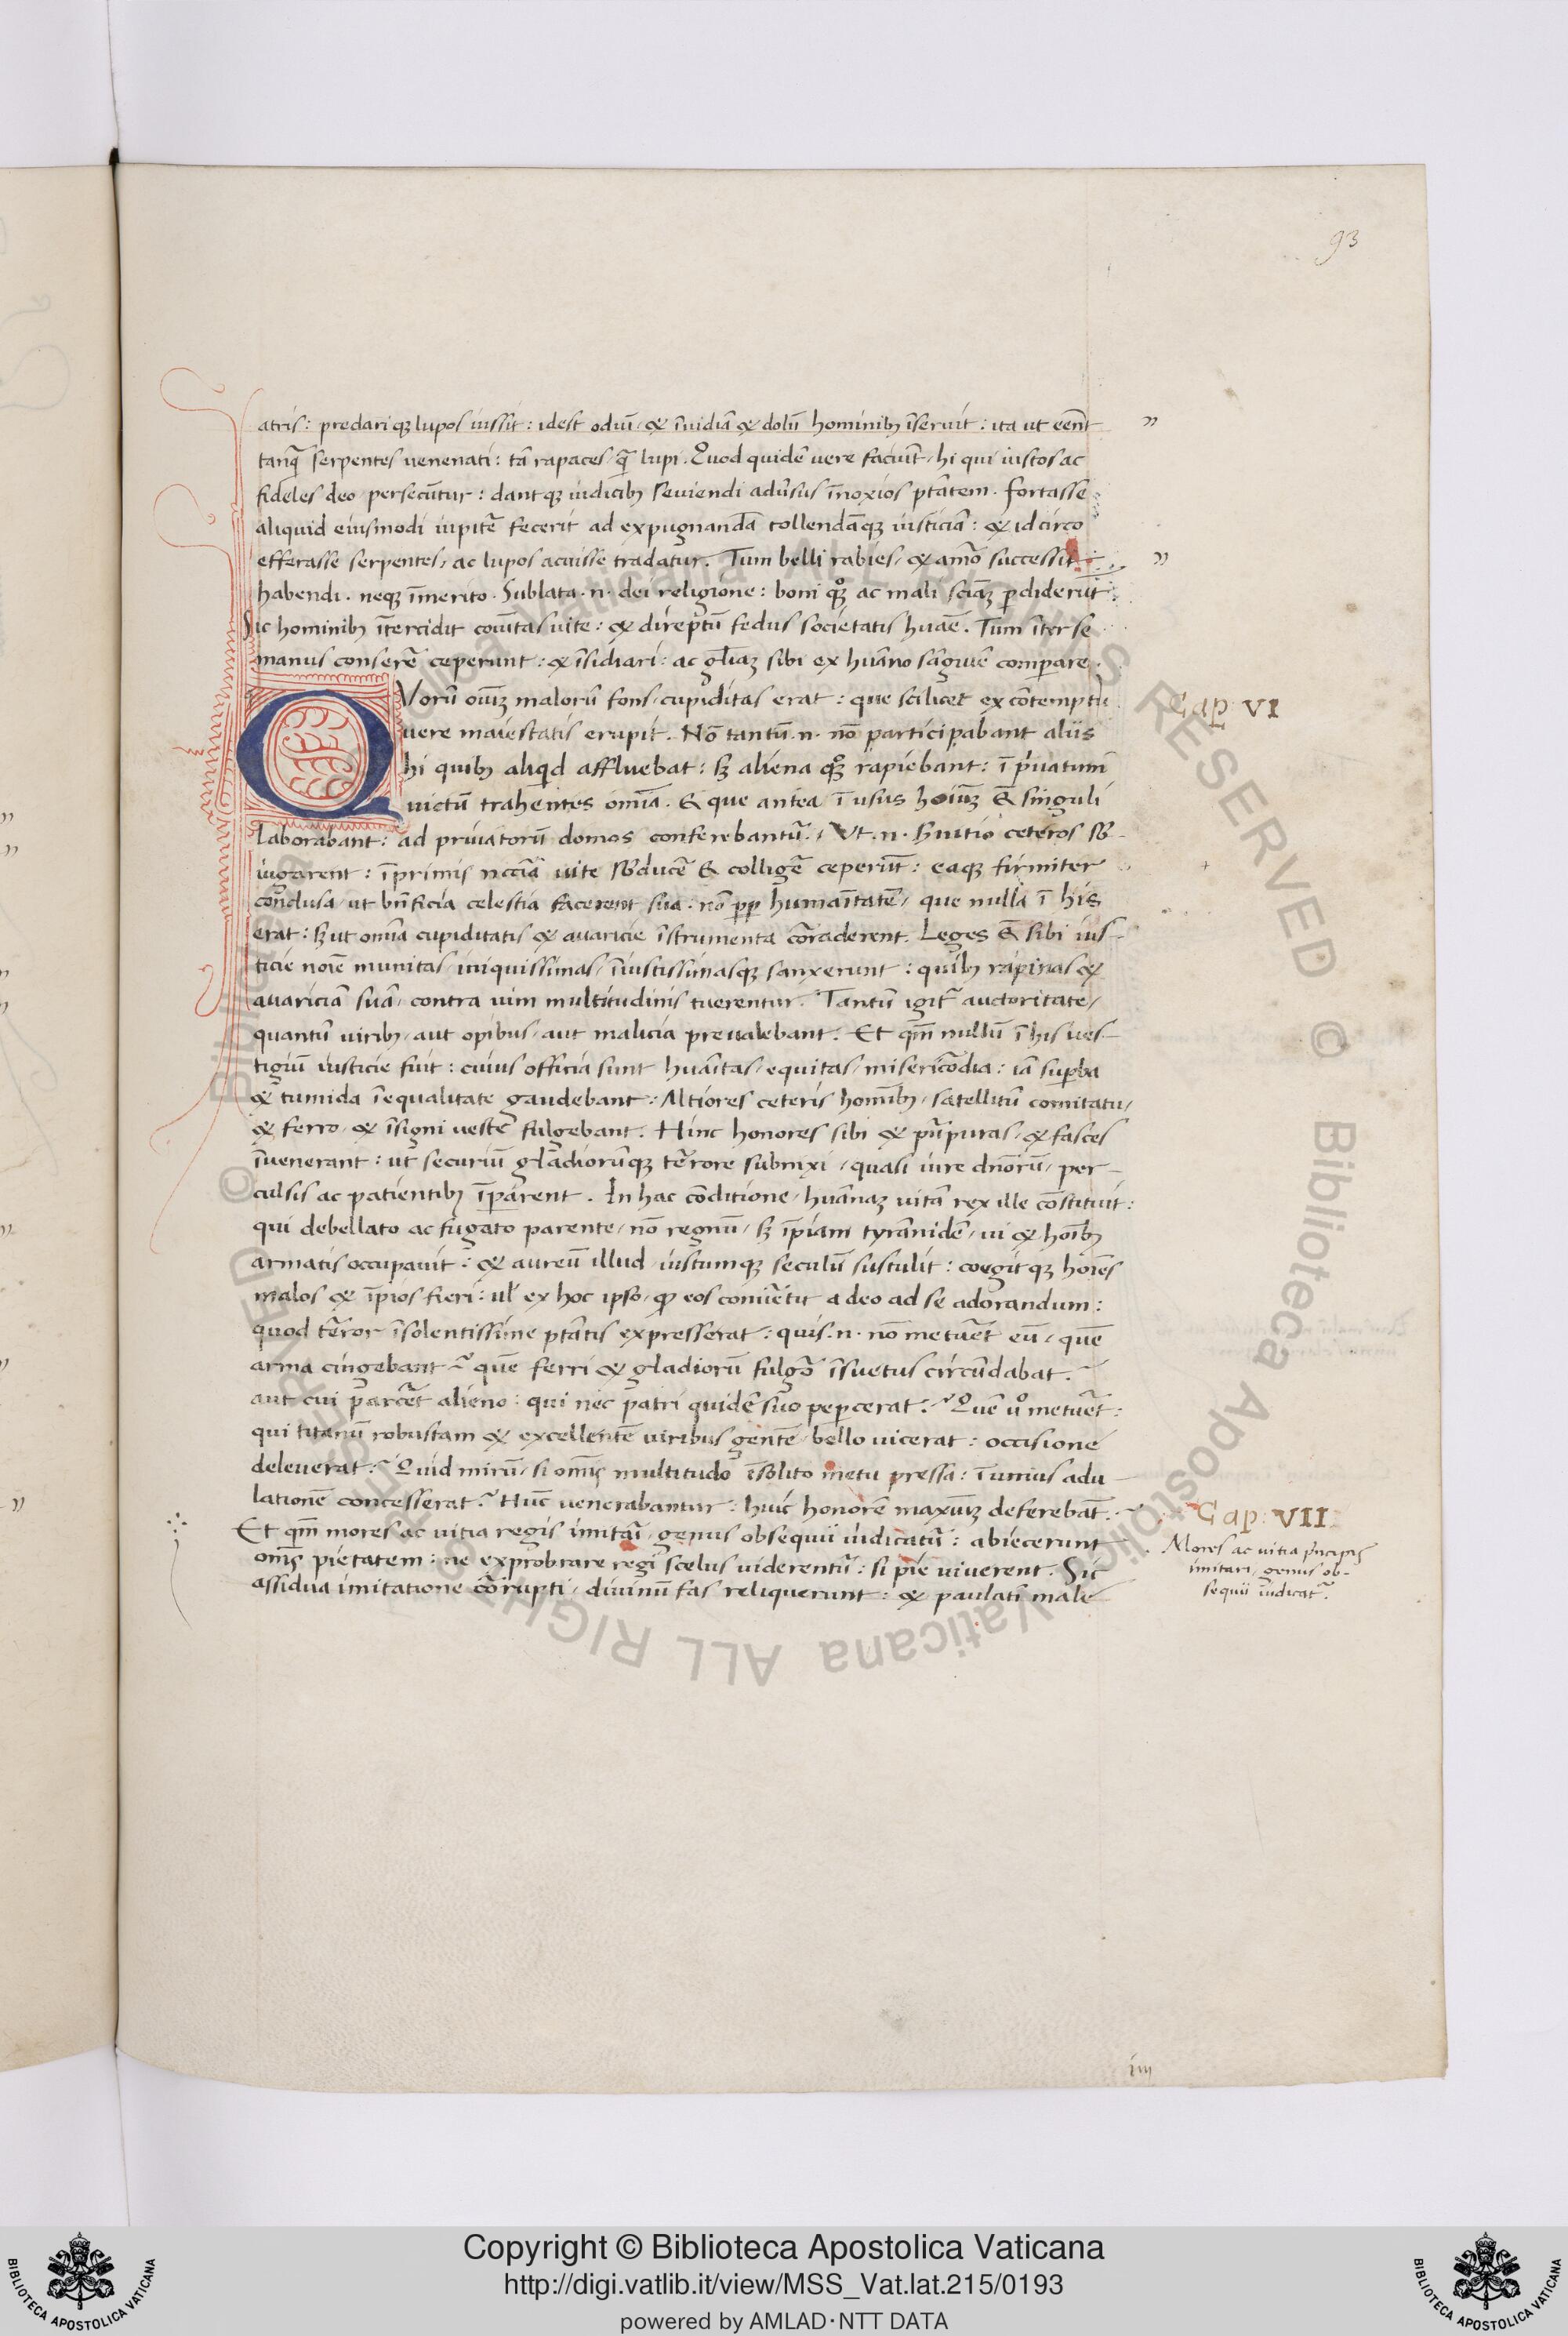 93
atris: predariqꝫ lupos iussit: idest odiū & īuidiā & dolū hominibꝫ īseruit: ita ut eēnt
tanq̄ serpentes uenenati: tā rapaces q̄ lupi. Quod quidē uere faciūt, hi qui iustos ac
fideles deo persecūtur: dantqꝫ iudicibꝫ seuiendi aduſus īnoxios ptātem. fortasse
aliquid eiusmodi iupitē fecerit ad expugnandā tollendāqꝫ iusticiā: & idcirco
efferasse serpentes, ac lupos acuisse tradatur. Tum belli rabies, & amō successit
habendi. neqꝫ īmerito. Sublata .n. dei religione: boni qꝫ ac mali sciāꝫ ꝑdiderūt
Sic hominibꝫ ītercidit coīutas uite: & direptū fedus societatis huāe. Tum īter se
manus conserē ceperunt: & īsidiari: ac gl̄iaꝫ sibi ex huāno sāguīe comꝑare.
QVorū oīuꝫ malorū fons, cupiditas erat: que scilicet ex cōtemptu
Cap: VI
uere maiestatis erupit. Nō tantū .n. nō participabant aliis
hi quibꝫ aliqd affluebat: sꝫ aliena qꝫ rapiebant: ī pͥuatum
uictū trahentes omīa. & que antea ī usus hoīuꝫ & singuli
laborabant: ad priuatorū domos conferebantͬ. Vt .n. seruitio ceteros sб-
iugarent: īprimis nccīa uite sбducē & colligē ceperūt: eaqꝫ firmiter
conclusa, ut bn̄ficia celestia facerent sua. nō ꝓp humaītatē, que nulla ī his
erat: sꝫ ut omīa cupiditatis & auaricie īstrumenta cōraderent. Leges & sibi ius-
ticie noīe munitas, iniquissimas, īiustissimasqꝫ sanxerunt: quibꝫ rapinas &
auariciā suā, contra uim multitudinis tuerentur. Tantū igitͬ auctoritate,
quantū uiribꝫ, aut opibus, aut malicia preualebant. Et qm̄ nullū ī his ues-
tigiū iusticie fuit: cuius officia sunt huāitas, equitas, misericōdia: iā suꝑba
& tumida īequalitate gaudebant: Altiores ceteris homībꝫ, satellitū comitatu,
& ferro, & īsigni ueste fulgebant. Hinc honores sibi & pūpuras, & fasces
īuenerant: ut securiū gladiorūqꝫ tērrore subnixi, quasi iure dn̄orū, per-
culsis ac patientibꝫ īꝑarent. In hac conditione, huānaꝫ uitā rex ille cōstituit:
qui debellato ac fugato parente, nō regnū, sꝫ īpiam tyrānidē, ui & hoībꝫ
armatis occupauit: & aureū illud iustumqꝫ seculū sustulit: coegitqꝫ hoīes
malos & īpios fieri: ul̄ ex hoc ipso, ꝙ eos conūētit a deo ad se adorandum:
quod tērror īsolentissime ptātis expresserat: quis .n. nō metuēt eū, quē
arma cingebant? quē ferri & gladiorū fulgō īsuetus circūdabat?
aut cui parcēt alieno: qui nec patri quidē suo peꝑcerat? Quē uͦ metuēt:
qui titanū robustam & excellentē uiribus gentē bello uicerat: occisione
deleuerat? Quid mirū, si omīs multitudo īsolito metu pressa: ī unius adu-
lationē concesserat? Hūc uenerabantur: huic honorē maxūꝫ deferebāt.
Et qm̄ mores ac uitia regis imitāi, genus obsequii iudicatū: abiecerunt
Cap: VII
omīs pietatem: ne exprobrare regi scelus uiderentū: si pie uiuerent. Sic
assidua imitatione cōrrupti, diuinū fas reliquerunt: & paulatī male
Mores ac uitia pͥncipis
imitari, genus ob-
sequii iudicatͬ.
iiij
Copyright © Biblioteca Apostolica Vaticana
http://digi.vatlib.it/view/MSS_Vat.lat.215/0193
powered by AMLAD·NTT DATA